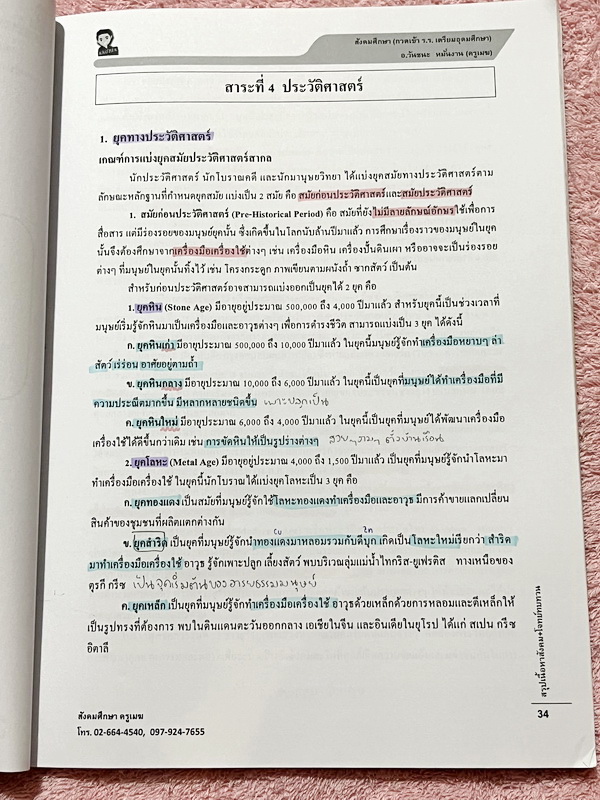 สังคมศึกษา (กวดเข้า ร.ร. เตรียมอุดมศึกษา)
อ.วันชนะ หมั่นงาน (ครูเมฆ)
สาระที่ 4 ประวัติศาสตร์
1. ยุคทางประวัติศาสตร์
เกณฑ์การแบ่งยุคสมัยประวัติศาสตร์สากล
นักประวัติศาสตร์ นักโบราณคดี และนักมานุษยวิทยา ได้แบ่งยุคสมัยทางประวัติศาสตร์ตาม
ลักษณะหลักฐานที่กำหนดยุคสมัย แบ่งเป็น 2 สมัย คือ สมัยก่อนประวัติศาสตร์และสมัยประวัติศาสตร์
1. สมัยก่อนประวัติศาสตร์ (Pre-Historical Period) คือ สมัยที่ยังไม่มีลายลักษณ์อักษรใช้เพื่อการ
สื่อสาร แต่มีร่องรอยของมนุษย์ยุคนั้น ซึ่งเกิดขึ้นในโลกนับล้านปีมาแล้ว การศึกษาเรื่องราวของมนุษย์ในยุค
นั้นจึงต้องศึกษาจากเครื่องมือเครื่องใช้ต่างๆ เช่น เครื่องมือหิน เครื่องปั้นดินเผา หรืออาจจะเป็นร่องรอย
ต่างๆ ที่มนุษย์ในยุคนั้นทิ้งไว้ เช่น โครงกระดูก ภาพเขียนตามผนังถ้ำ ซากสัตว์ เป็นต้น
สำหรับก่อนประวัติศาสตร์อาจสามารถแบ่งออกเป็นยุคได้ 2 ยุค คือ
1.ยุคหิน (Stone Age) มีอายุอยู่ประมาณ 500,000 ถึง 4,000 ปีมาแล้ว สำหรับยุคนี้เป็นช่วงเวลาที่
มนุษย์เริ่มรู้จักหินมาเป็นเครื่องมือและอาวุธต่างๆ เพื่อการดำรงชีวิต สามารถแบ่งเป็น 3 ยุค ได้ดังนี้
ก. ยุคหินเก่า มีอายุประมาณ 500,000 ถึง 10,000 ปีมาแล้ว ในยุคนี้มนุษย์รู้จักทำเครื่องมือหยาบๆ ล่า
สัตว์ เร่ร่อน อาศัยอยู่ตามถ้ำ
ข. ยุคหินกลาง มีอายุประมาณ 10,000 ถึง 6,000 ปีมาแล้ว ในยุคนี้เป็นยุคที่มนุษย์ได้ทำเครื่องมือที่มี
ความประณีตมากขึ้น มีหลากหลายชนิดขึ้น เพาะปลูกเป็น
ค. ยุคหินใหม่ มีอายุประมาณ 6,000 ถึง 4,000 ปีมาแล้ว ในยุคนี้เป็นยุคที่มนุษย์ได้พัฒนาเครื่องมือ
เครื่องใช้ได้ดีขึ้นกว่าเดิม เช่น การขัดหินให้เป็นรูปร่างต่างๆ ตั้งบ้านเรือน
2.ยุคโลหะ (Metal Age) มีอายุอยู่ประมาณ 4,000 ถึง 1,500 ปีมาแล้ว เป็นยุคที่มนุษย์รู้จักนำโลหะมา
ทำเครื่องมือเครื่องใช้ ในยุคนี้นักโบราณได้แบ่งยุคโลหะเป็น 3 ยุค คือ
ก. ยุคทองแดง เป็นสมัยที่มนุษย์รู้จักใช้โลหะทองแดงทำเครื่องมือและอาวุธ มีการค้าขายแลกเปลี่ยน
สินค้าของชุมชนที่ผลิตแตกต่างกัน
Cu Zn
ข. ยุคสำริด เป็นยุคที่มนุษย์รู้จักนำทองแดงมาหลอมรวมกับดีบุก เกิดเป็นโลหะใหม่เรียกว่า สำริด
มาทำเครื่องมือเครื่องใช้ อาวุธ รู้จักเพาะปลูก เลี้ยงสัตว์ พบบริเวณลุ่มแม่น้ำไทกริส-ยูเฟรติส ทางเหนือของ
ตุรกี กรีซ เป็นจุดเริ่มต้นของอารยธรรมมนุษย์
ค. ยุคเหล็ก เป็นยุคที่มนุษย์รู้จักทำเครื่องมือเครื่องใช้ อาวุธด้วยเหล็กด้วยการหลอมและตีเหล็กให้
เป็นรูปทรงที่ต้องการ พบในดินแดนตะวันออกกลาง เอเชียในจีน และอินเดียในยุโรป ได้แก่ สเปน กรีซ
อิตาลี
สรุปเนื้อหาสังคม+โจทย์ทบทวน
34
สังคมศึกษา ครูเมฆ
โทร. 02-664-4540, 097-924-7655